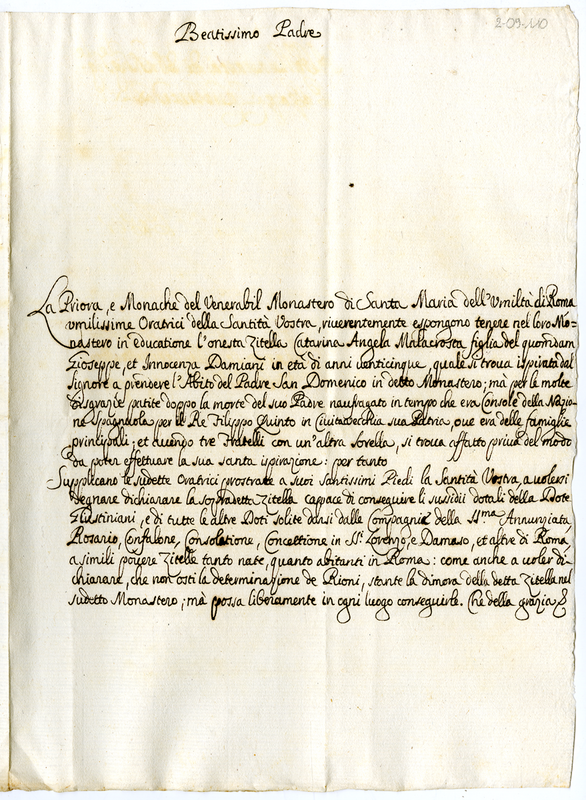 2-09-110
Beatissimo Padre
La Priora, e Monache del Venerabil Monastero di Santa Maria dell'Vmiltà di Roma
vmilissime Oratrici della Santità Vostra, riuerentemente espongono tenere nel loro Mo-
nastero in educatione l'onesta Zitella Catarina Angela Malacrosta figlia del quondam
Gioseppe, et Innocenza Damiani in età di anni venticinque, quale si troua ispirata dal
Signore a prendere l'Abito del Padre San Domenico in detto Monastero; mà per le molte
disgrazie patite doppo la morte del suo Padre naufragato in tempo che era Console della Nazio-
ne Spagnuola per il Re Filippo Quinto in Ciuitauecchia sua Patria, oue era delle famiglie
principali; et auendo tre Fratelli con un'altra sorella, si troua affatto priua del modo
da poter effettuare la sua santa ispirazione: per tanto
Supplicano le sudette Oratrici prostrate a suoi Santissimi Piedi la Santità Vostra, a uolersi
degnare dichiarare la sopradetta Zitella capace di conseguire li sussidii dotali della Dote
Giustiniani, e di tutte le altre Doti solite darsi dalle Compagnie della SS.ma Annunziata,
Rosario, Confalone, Consolatione, Concettione in S. Lorenzo, e Damaso, et altre di Roma,
a simili pouere Zitelle tanto nate, quanto abitanti in Roma: come anche a uoler di-
chiarare, che non osti la determinazione de Rioni, stante la dimora della detta Zitella nel
sudetto Monastero; mà possa liberamente in ogni luogo conseguirle. Che della grazia &